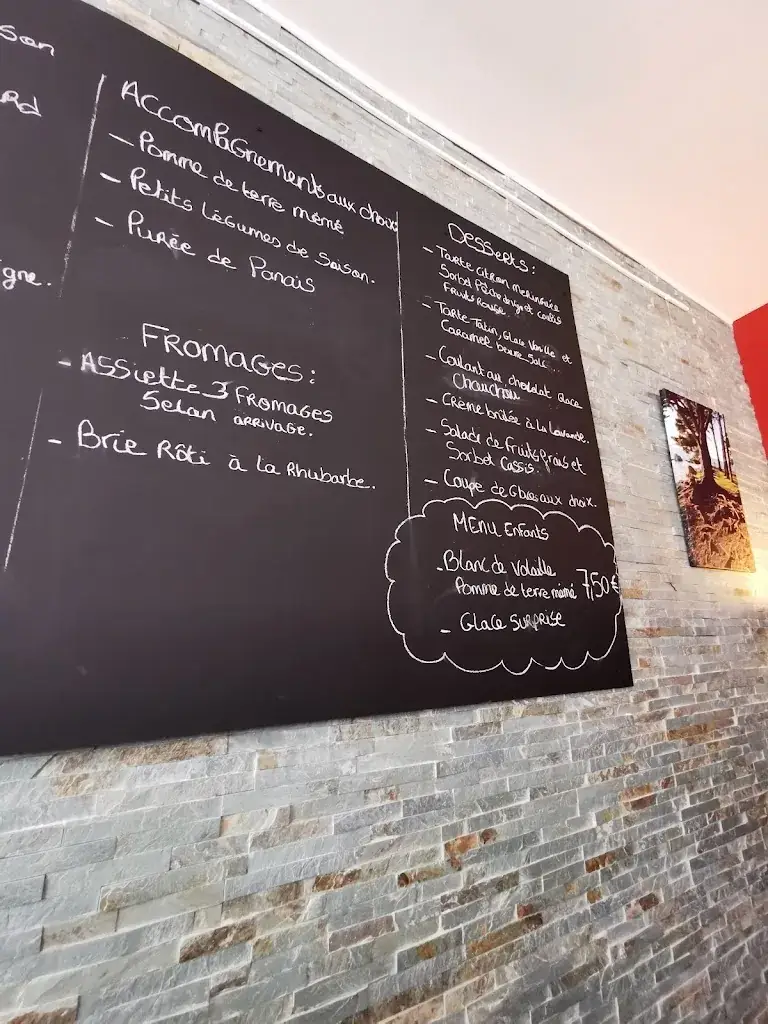 son
Rd
igne.
Accompagnements aux choix
- Pomme de terre mémé
- Petits légumes de Saison.
- Purée de Panais
FROMAGES:
- Assiette 3 FROMAGES
Selon ARRIVAGE.
- Brie Rôti à la Rhubarbe.
Desserts:
- Tarte citron meringuée
Sorbet Pêche de vigne et cassis
Fruits Rouge.
- Tarte Tatin, Glace Vanille et
Caramel beurre Salé.
- Coulant au chocolat glace
Chouchou
- Crème brûlée à la Lavande.
- Salade de Fruits frais et
Sorbet Cassis.
- Coupe de Glaces aux choix.
MENU Enfants
- Blanc de volaille
Pomme de terre mémé 7,50€
- Glace SURPRISE